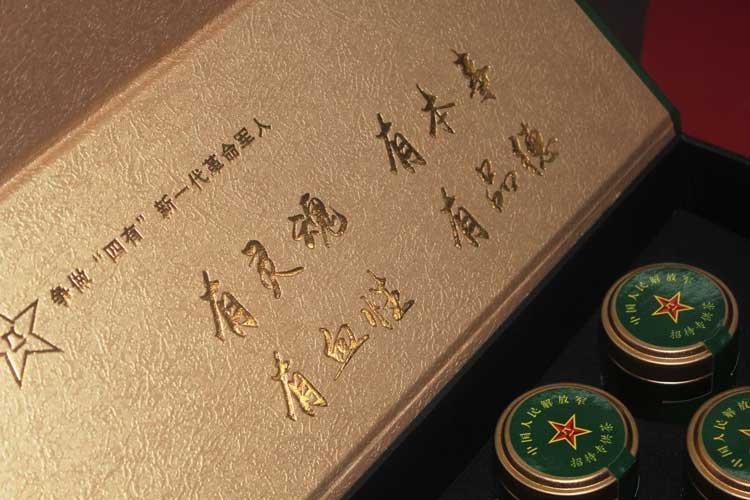 争做“四有”新一代革命军人
有灵魂
有本事
有血性
有品德
中国人民解放军
招待专供茶
中国人民解放军
招待专供茶
中国人民解放军